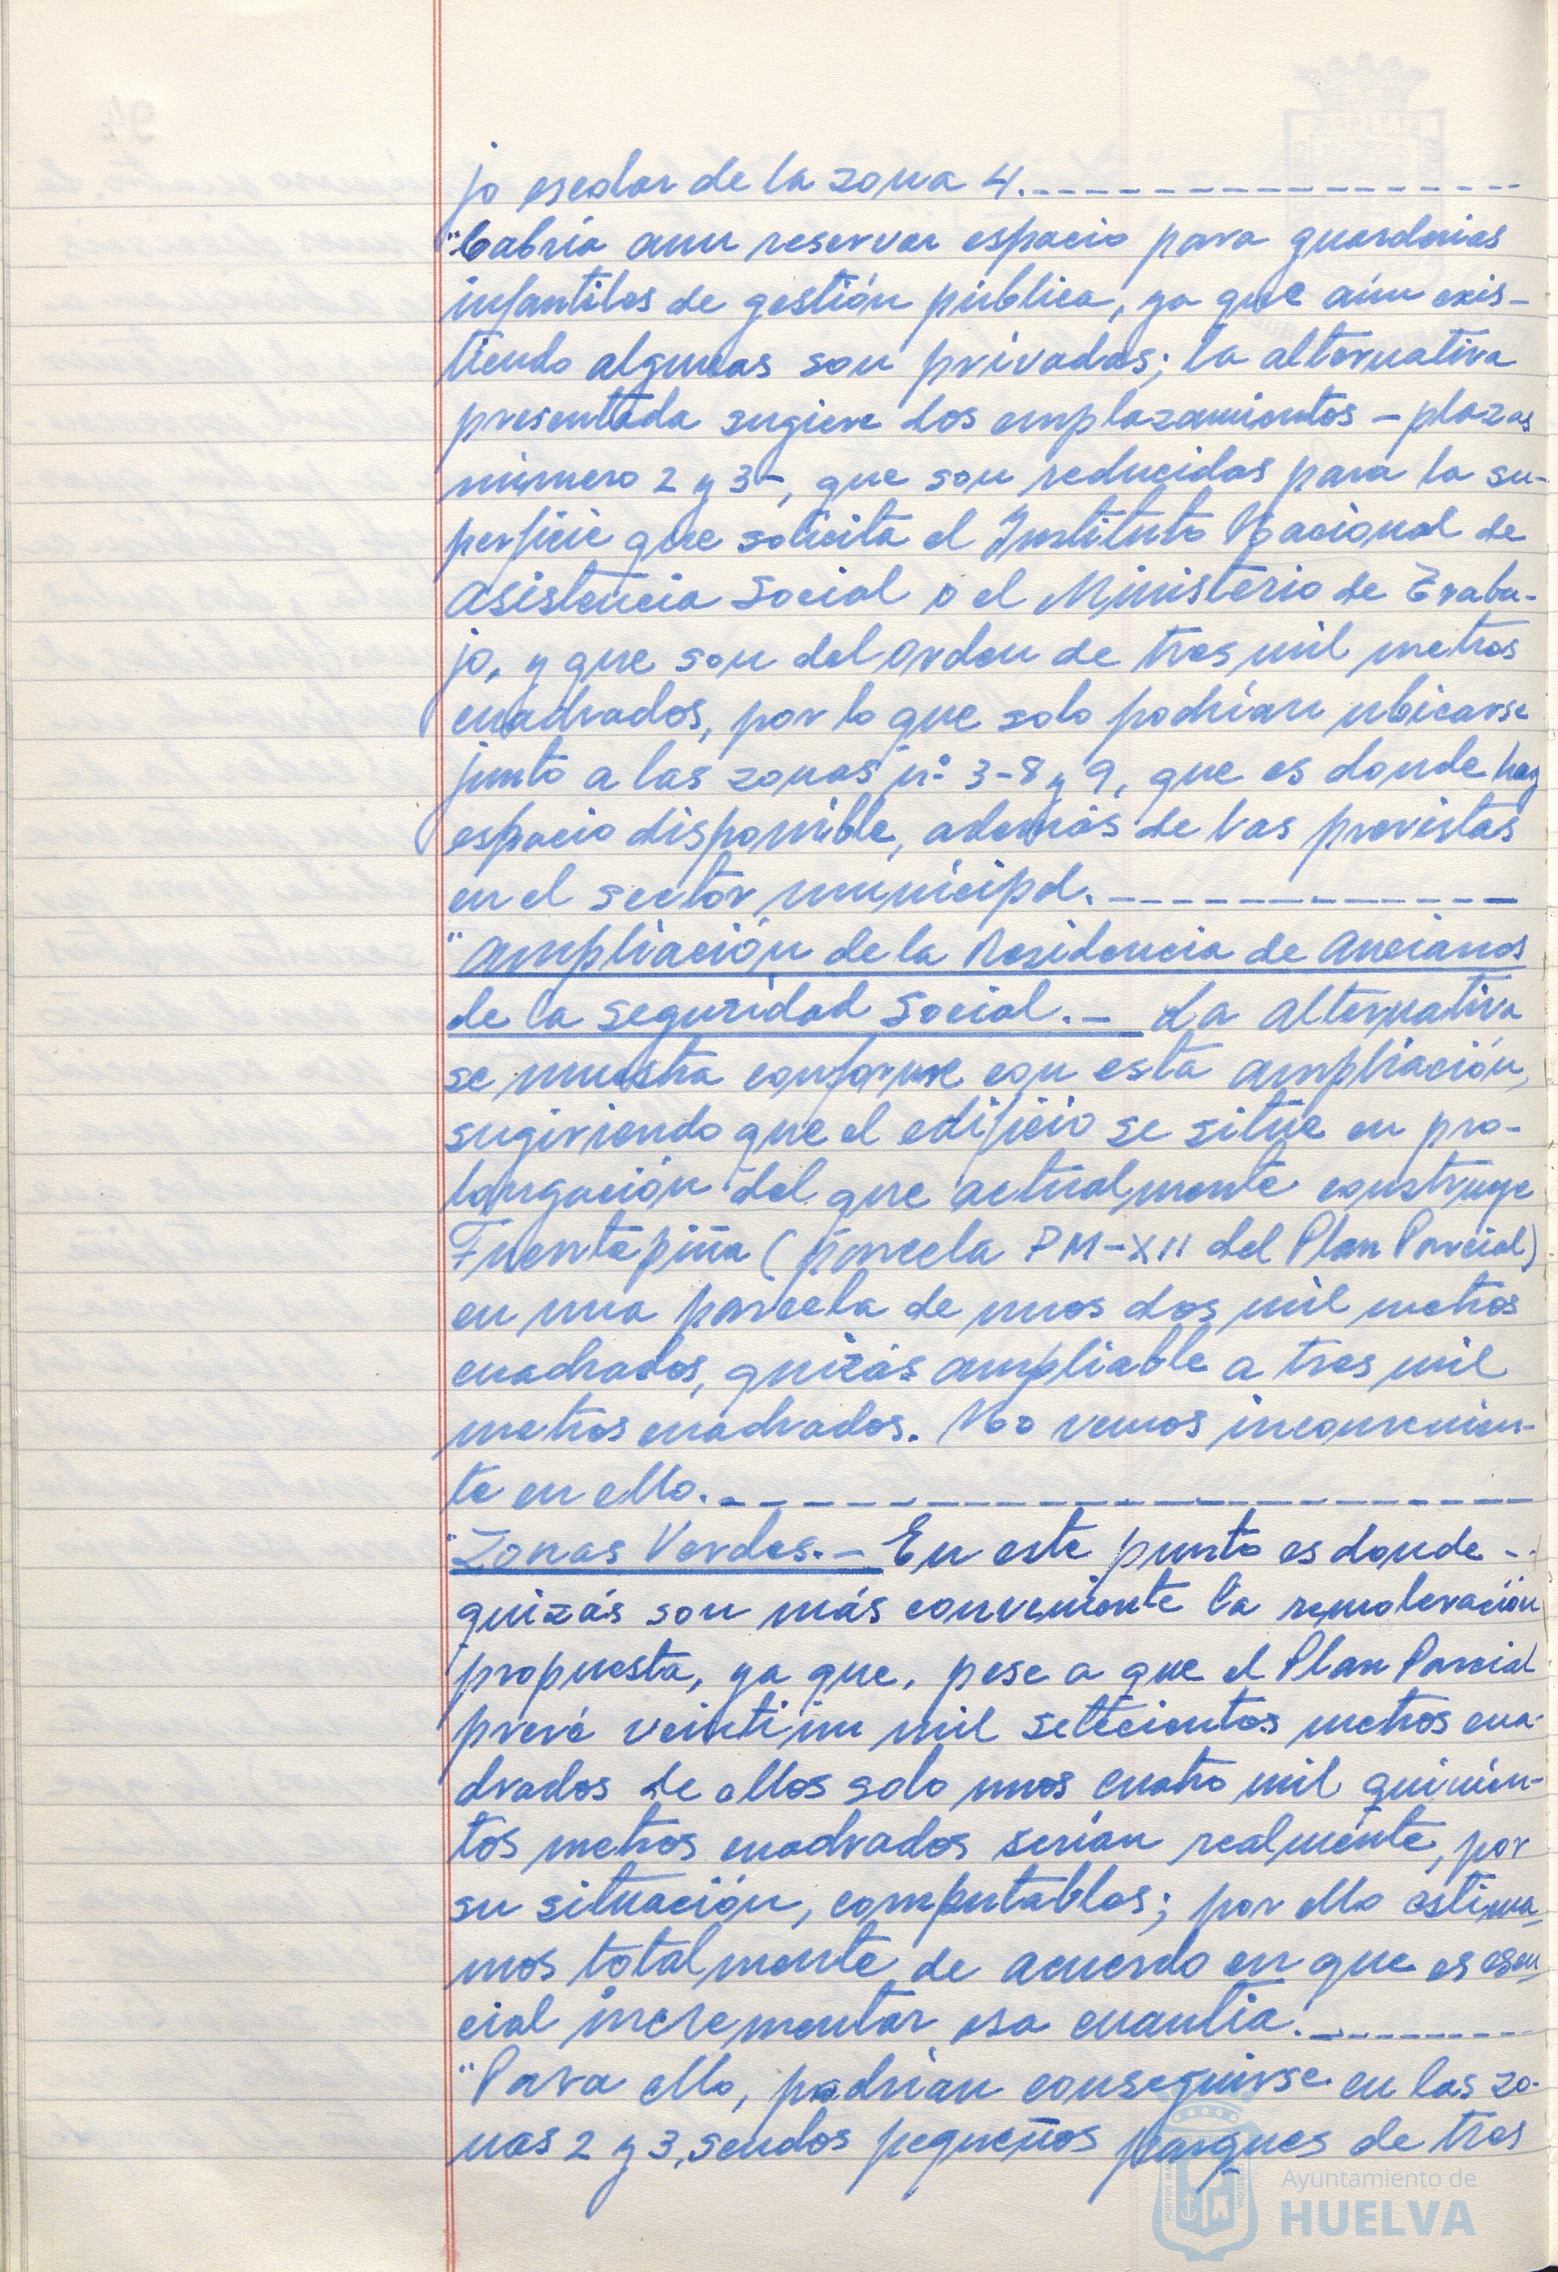 jo escolar de la zona 4.
"Cabría aun reservar espacio para guarderias
infantiles de gestión pública, ya que aún exis-
tiendo algunas son privadas; la alternativa
presentada sugiere dos emplazamientos - plazas
número 2 y 3-, que son reducidas para la su-
perficie que solicita el Instituto Nacional de
Asistencia Social o el Ministerio de Traba-
jo, y que son del orden de tres mil metros
cuadrados, por lo que solo podrían ubicarse
junto a las zonas nº 3-8 y 9, que es donde hay
espacio disponible, además de las previstas
en el sector municipal.
"Ampliación de la Residencia de Ancianos
de la Seguridad Social.- La alternativa
se muestra conforme con esta ampliación,
sugiriendo que el edificio se sitúe en pro-
longación del que actualmente construye
Fuentepiña (parcela PM-XII del Plan Parcial)
en una parcela de unos dos mil metros
cuadrados, quizás ampliable a tres mil
metros cuadrados. No vemos inconvenien-
te en ello.
"Zonas Verdes.- En este punto es donde -
quizás son más conveniente la remodevación
propuesta, ya que, pese a que el Plan Parcial
prevé veintiun mil setecientos metros cua-
drados de ellos solo unos cuatro mil quinien-
tos metros cuadrados serian realmente, por
su situación, computables; por ello estima-
mos totalmente de acuerdo en que es esen-
cial incrementar esa cuantía.
"Para ello, podrían conseguirse en las zo-
nas 2 y 3, sendos pequeños parques de tres
Ayuntamiento de
HUELVA